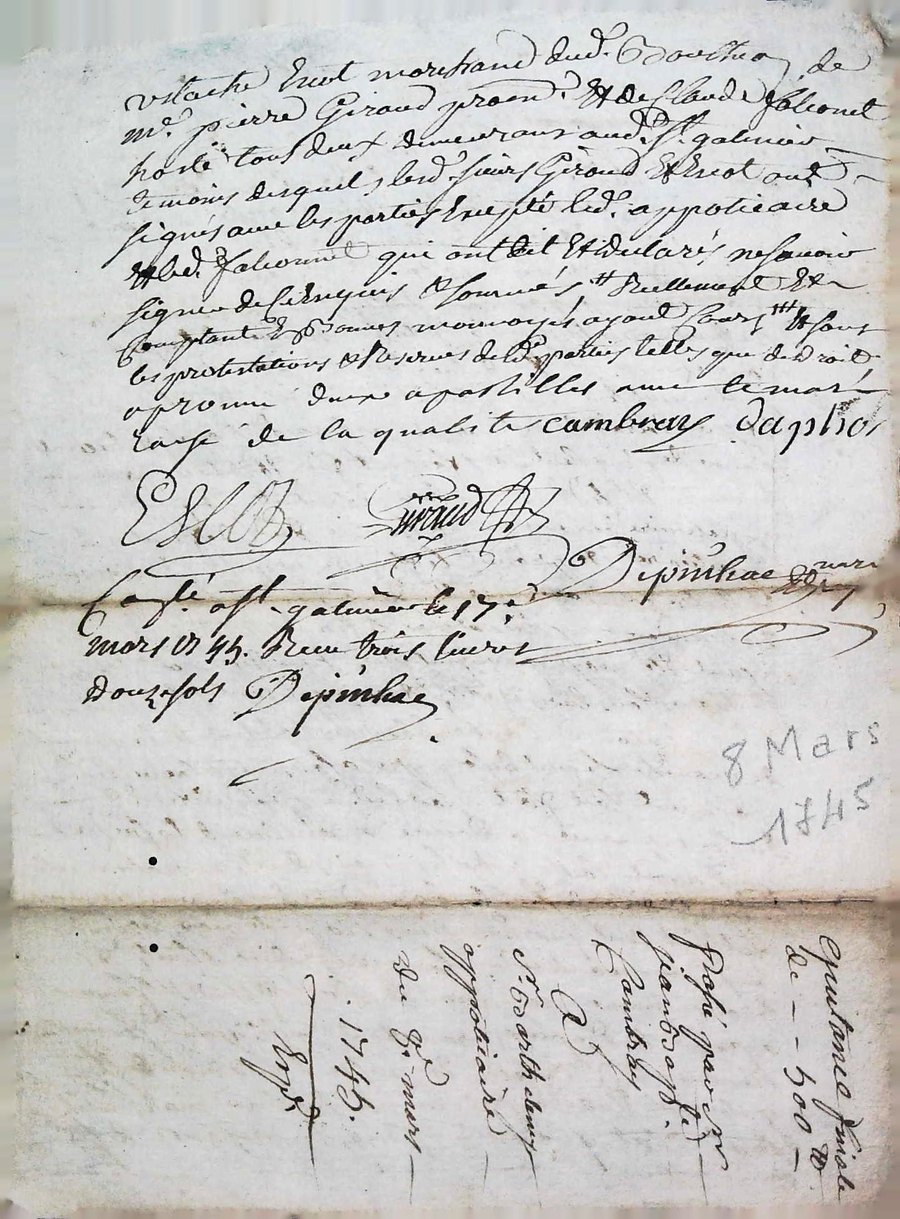 ustache Escot marchand dud.
me. pierre Giraud procu. et de Claude falconet
hoste tous deux demeurans aud. St. galmier
temoins desquels lesd. sieurs Giraud et Escot ont
signés avec les parties Excepté led. appoticaire
et led. falconnet qui ont dit et declarés ne savoir
signer de ce Enquis et sommés # Reellement et
Comptant En bonnes monnoyes ayant Cours ### et sous
les protestations et Reserves desd. parties telles que de droit
aprouvé deux apostilles avec le mot
rayé de la qualité cambray daphos
Escot Giraud
Depinhac
Conlé. a St. galmier le 17e.
mars 1745. Receu trois livres
douze sols Depinhac
8 Mars
1745
Quitance finale
de - - 500 tt -
passé par sr
jean bapte.
Cambray
A
sr. Barthelemy
appoticaire
du 8e. mars
1745.
Expd.